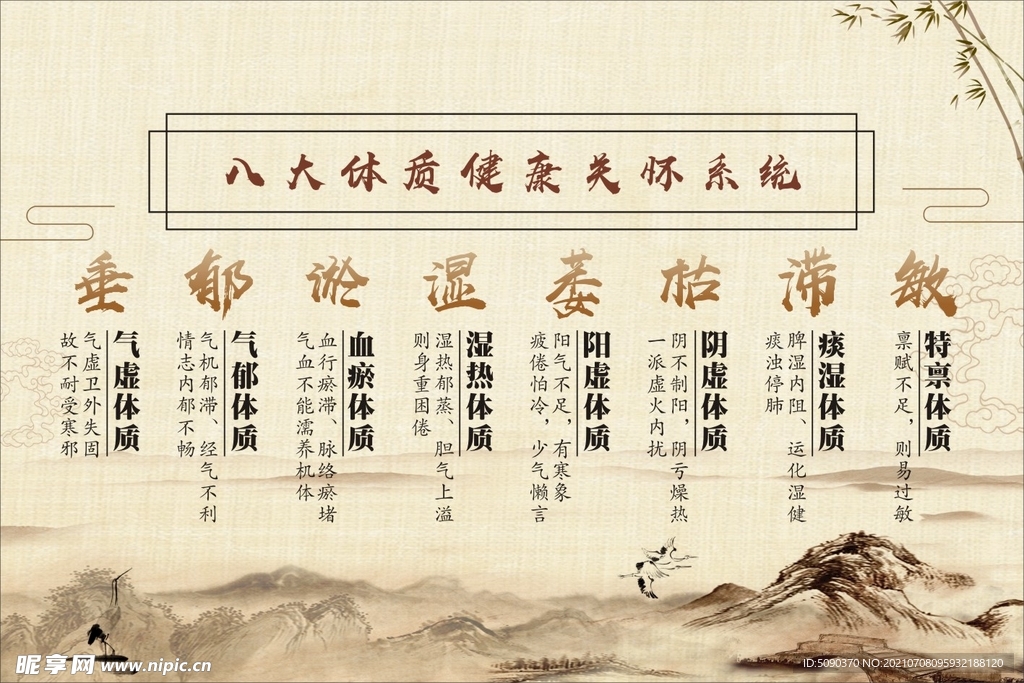 八大体质健康关怀系统
敏
特禀体质
禀赋不足，则易过敏
滞
痰湿体质
脾湿内阻、运化湿健
痰浊停肺
枯
阴虚体质
阴不制阳，阴亏燥热
一派虚火内扰
萎
阳虚体质
阳气不足，有寒象
疲倦怕冷，少气懒言
湿
湿热体质
湿热郁蒸、胆气上溢
则身重困倦
淤
血瘀体质
血行瘀滞、脉络瘀堵
气血不能濡养机体
郁
气郁体质
气机郁滞、经气不利
情志内郁不畅
垂
气虚体质
气虚卫外失固
故不耐受寒邪
昵享网 www.nipic.cn
ID:5090370 NO:20210708095932188120